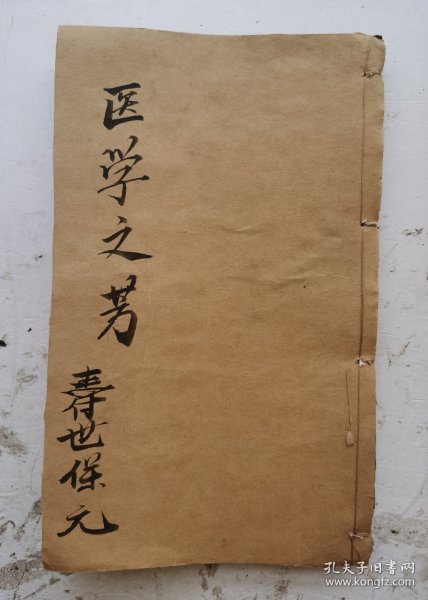 医学之芳
寿世保元
孔夫子旧书网
www.kongfz.com